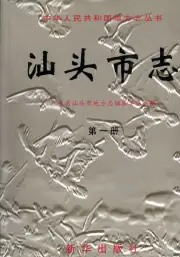 中华人民共和国地方志丛书
汕头市志
广东省汕头市地方志编纂委员会编
第一册
新华出版社